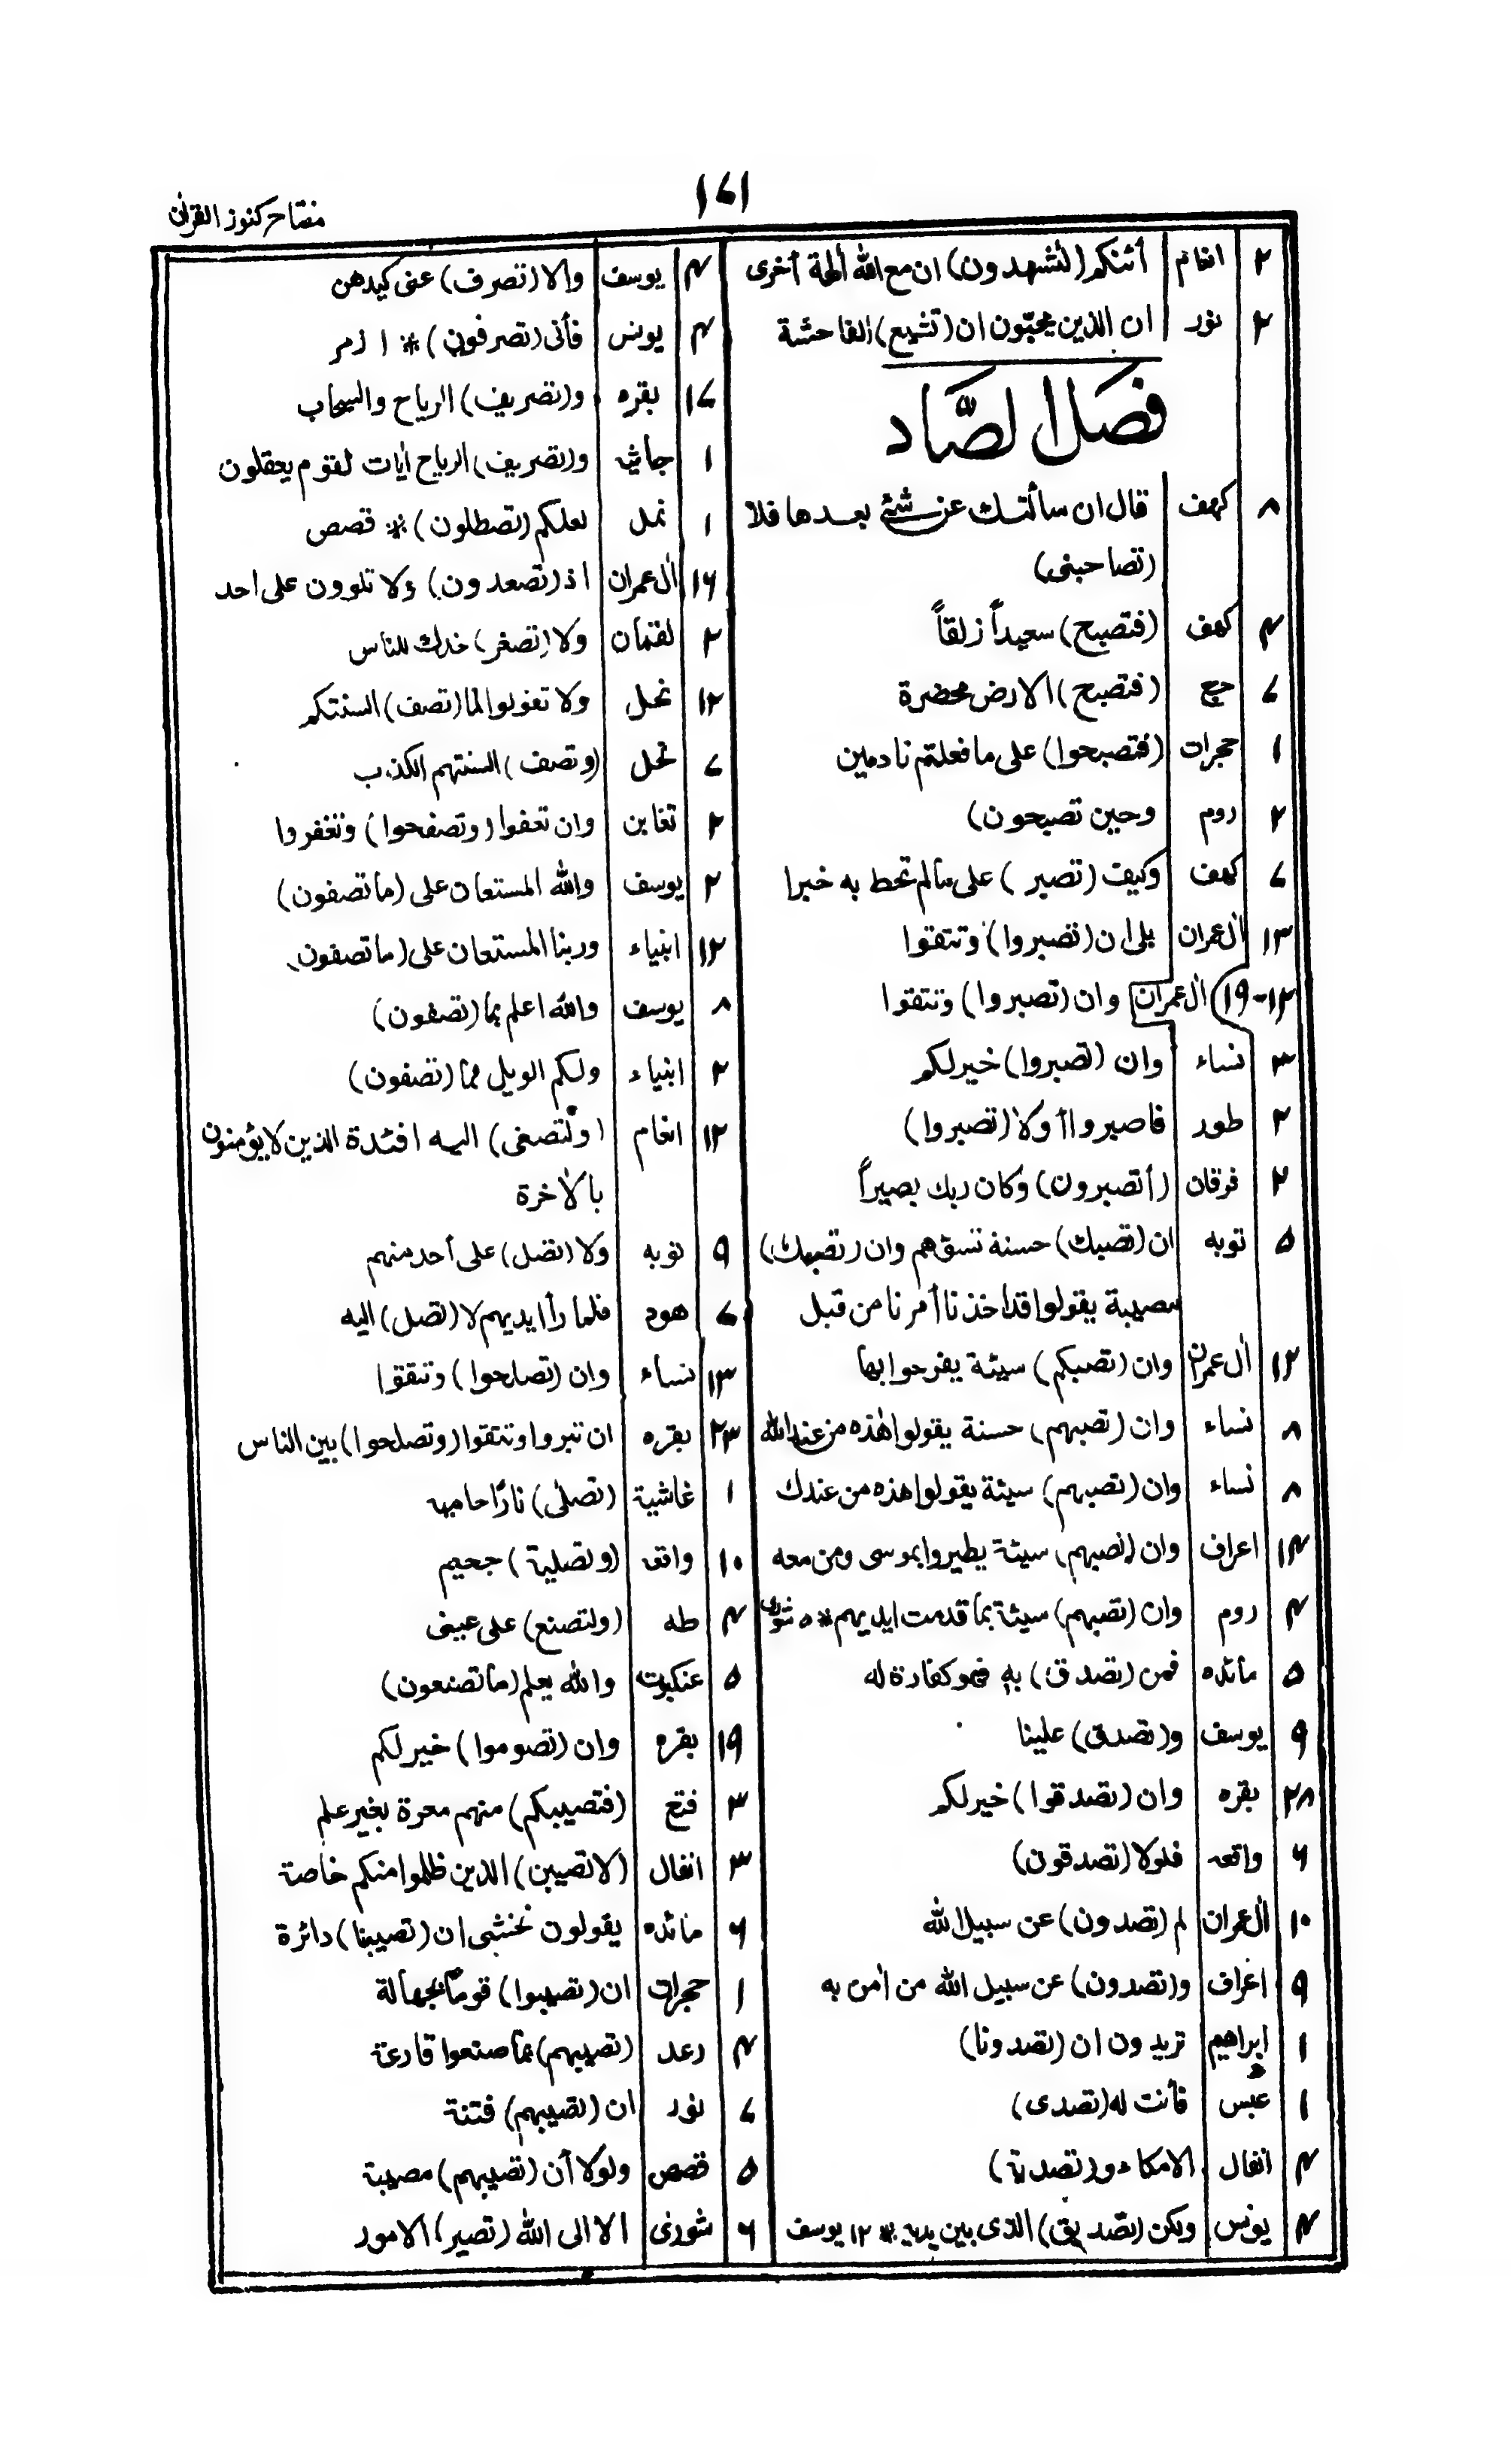 ١٧١
مفتاح كنوز القرآن
٢ انعام أئنكم (لتشهدون) ان مع الله ألهة أخرى
٢ نور ان الذين يحبّون ان (تشيع) الفاحشة
فصل الصَّاد
٨ كهف قال ان سألتك عن شئ بعدها فلا
(تصاحبنى)
٤ كهف (فتصبح) سعيداً زلقاً
٧ حج (فتصبح) الارض مخضرة
١ حجرات (فتصبحوا) على ما فعلتم نادمين
٢ روم وحين تصبحون)
٧ كهف وكيف (تصبر) على مالم تحط به خبرا
١٣ أل عمران بلى ان (تصبروا) وتتقوا
١٢-١٩) أل عمران وان (تصبروا) وتتقوا
٣ نساء وان (تصبروا) خير لكم
٢ طور فاصبروا أولا (تصبروا)
٢ فرقان (أتصبرون) وكان ربك بصيراً
٥ توبه ان (تصبك) حسنة تسؤهم وان (تصبك)
مصيبة يقولوا قد أخذنا أمرنا من قبل
١٢ أل عمران وان (تصبكم) سيئة يفرحوا بها
٨ نساء وان (تصبهم) حسنة يقولوا هٰذه من عند الله
٨ نساء وان (تصبهم) سيئة يقولوا هذه من عندك
١٤ اعراف وان (تصبهم) سيئة يطيروا بموسى ومن معه
٤ روم وان (تصبهم) سيئة بما قدمت ايديهم * ٥ شورى
٥ مائده فمن (تصدق) به فهو كفارة له
٩ يوسف و(تصدق) علينا
٢٨ بقره وان (تصدقوا) خير لكم
٦ واقعه فلولا (تصدقون)
١٠ أل عمران لم (تصدون) عن سبيل الله
٩ اعراف و(تصدون) عن سبيل الله من أمن به
١ ابراهيم تريدون ان (تصدونا)
١ عبس فأنت له (تصدى)
٤ انفال الامكاء و(تصدية)
٤ يونس ولكن (تصديق) الذى بين يديه * ١٢ يوسف
٤ يوسف والا (تصرف) عنى كيدهن
٤ يونس فأنى (تصرفون) * ١ زمر
١٧ بقره و(تصريف) الرياح والسحاب
١ جاثيه و(تصريف) الرياح أيات لقوم يعقلون
١ نمل لعلكم (تصطلون) * قصص
١٦ أل عمران اذ (تصعدون) ولا تلوون على احد
٢ لقمان ولا (تصعر) خدك للناس
١٢ نحل ولا تقولوا لما (تصف) السنتكم
٧ نحل (وتصف) السنتهم الكذب
٢ تغابن وان تعفوا (وتصفحوا) وتغفروا
٢ يوسف والله المستعان على (ما تصفون)
١٢ انبياء وربنا المستعان على (ما تصفون)
٨ يوسف والله اعلم بما (تصفون)
٢ انبياء ولكم الويل مما (تصفون)
١٢ انعام (ولتصغى) اليه افئدة الذين لا يؤمنون
بالأخرة
٩ توبه ولا (تصل) على أحد منهم
٧ هود فلما رأ ايديهم لا (تصل) اليه
١٣ نساء وان (تصلحوا) وتتقوا
٢٣ بقره ان تبروا وتتقوا (وتصلحوا) بين الناس
١ غاشية (تصلى) نارًا حاميه
١٠ واقعه (وتصلية) جحيم
٤ طه (ولتصنع) على عينى
٥ عنكبوت والله يعلم (ما تصنعون)
١٩ بقره وان (تصوموا) خير لكم
٣ فتح (فتصيبكم) منهم معرة بغير علم
٣ انفال (لا تصيبن) الذين ظلموا منكم خاصة
٦ مائده يقولون نخشى ان (تصيبنا) دائرة
١ حجرات ان (تصيبوا) قومًا بجهالة
٤ رعد (تصيبهم) بما صنعوا قارعة
٧ نور ان (تصيبهم) فتنة
٥ قصص ولولا أن (تصيبهم) مصيبة
٦ شورىٰ الا الى الله (تصير) الامور